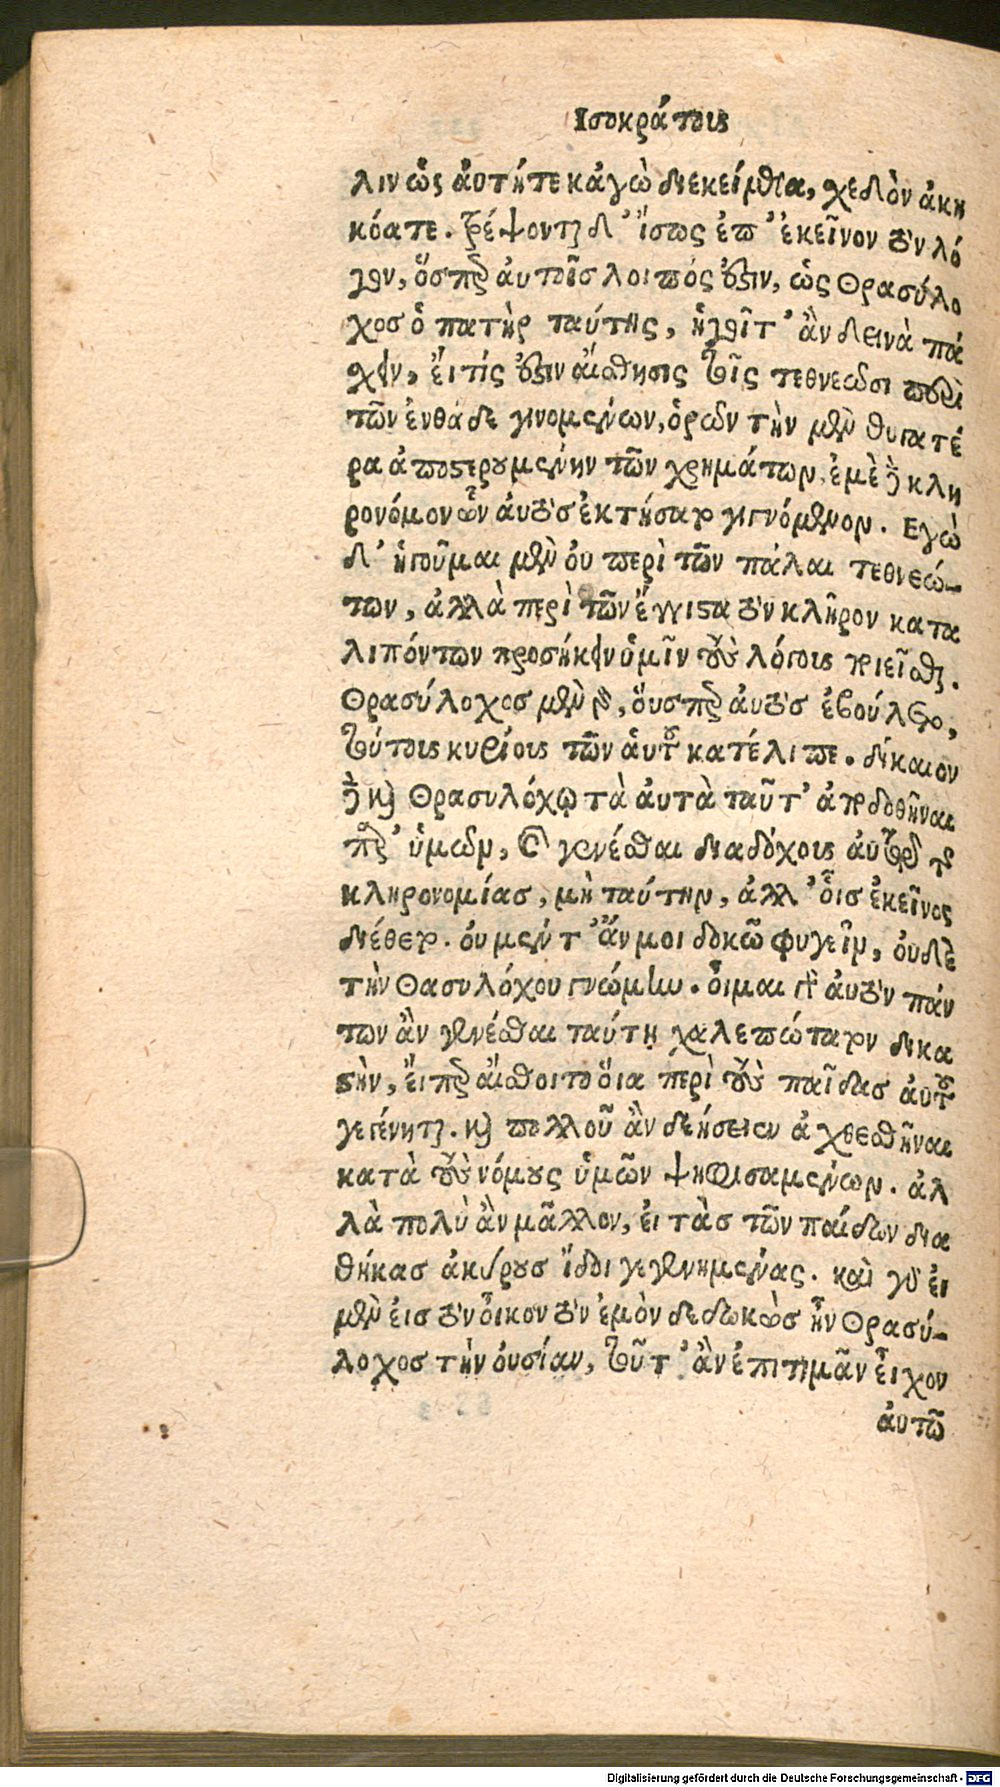 Ισοκράτους
λιν ὥς ἀυτήτε κἀγὼ διεκείμεθα, χεδὸν ἀκη
κόατε. τρέψονται δ’ ἴσως ἐπ’ ἐκεῖνον τὸν λό
γον, ὅσπερ ἀυτοῖσ λοιπός ὅστιν, ὡς Θρασύλο
χοσ ὁ πατὴρ ταύτης, ἡγοῖτ’ ἂν δεινὰ πά
χειν, ἔι τίς ὅστιν ἀίσθησις τοῖς τεθνεῶσι περὶ
τῶν ἐνθάδε γινομένων, ὁρῶν τὴν μὲν θυγατέ
ρα ἀποστερουμένην τῶν χρημάτων, ἐμὲ δὲ κλη
ρονόμον ὧν ἀυτὸσ ἐκτήσατο γιγνόμενον. Εγὼ
δ’ ἡγοῦμαι μὲν ὀυ περὶ τῶν πάλαι τεθνεώ-
των, ἀλλὰ περὶ τῶν ἔγγιστα τὸν κλῆρον κατα
λιπόντων προσήκειν ὑμῖν τοὺς λόγους ποιεῖσθαι.
Θρασύλοχοσ μὲν γὰρ, ὅυσπερ ἀυτὸσ ἐβούλετο,
τούτους κυρίους τῶν ἁυτοῦ κατέλιπε. δίκαιον
δὲ καὶ Θρασυλόχῳ τὰ ἀυτὰ ταῦτ’ ἀποδοθῆναι
παρ’ ὑμῶν, καὶ γενέσθαι διαδόχους ἀυτοῦ τῆς
κληρονομίασ, μὴ ταύτην, ἀλλ’ οἷσ ἐκεῖνος
διέθετο. ὀυ μέντ’ ἄν μοι δοκῶ φυγεῖν, ὀυδὲ
τὴν Θασυλόχου γνώμην. οἶμαι γὰρ ἀυτὸν πάν
των ἂν γενέσθαι ταύτῃ χαλεπώτατον δικα
στὴν, ἔιπερ ἄισθοιτο ὅια περὶ τοὺς παῖδασ ἀυτοῦ
γεγένηται. καὶ πολλοῦ ἂν δεήσειεν ἀχθεσθῆναι
κατὰ τοὺς νόμους ὑμῶν ψηφισαμένων. ἀλ
λὰ πολὺ ἂν μᾶλλον, ἐι τὰσ τῶν παίδων δια
θήκασ ἀκύρουσ ἴδοι γεγενημένας. καὶ γὰρ ἐι
μὲν ἐισ τὸν οἶκον τὸν ἐμὸν δεδωκὼσ ἦν Θρασύ-
λοχοσ τὴν ὀυσίαν, τοῦτ’ ἂν ἐπιτιμᾶν εἶχον
ἀυτῶ
Digitalisierung gefördert durch die Deutsche Forschungsgemeinschaft - DFG